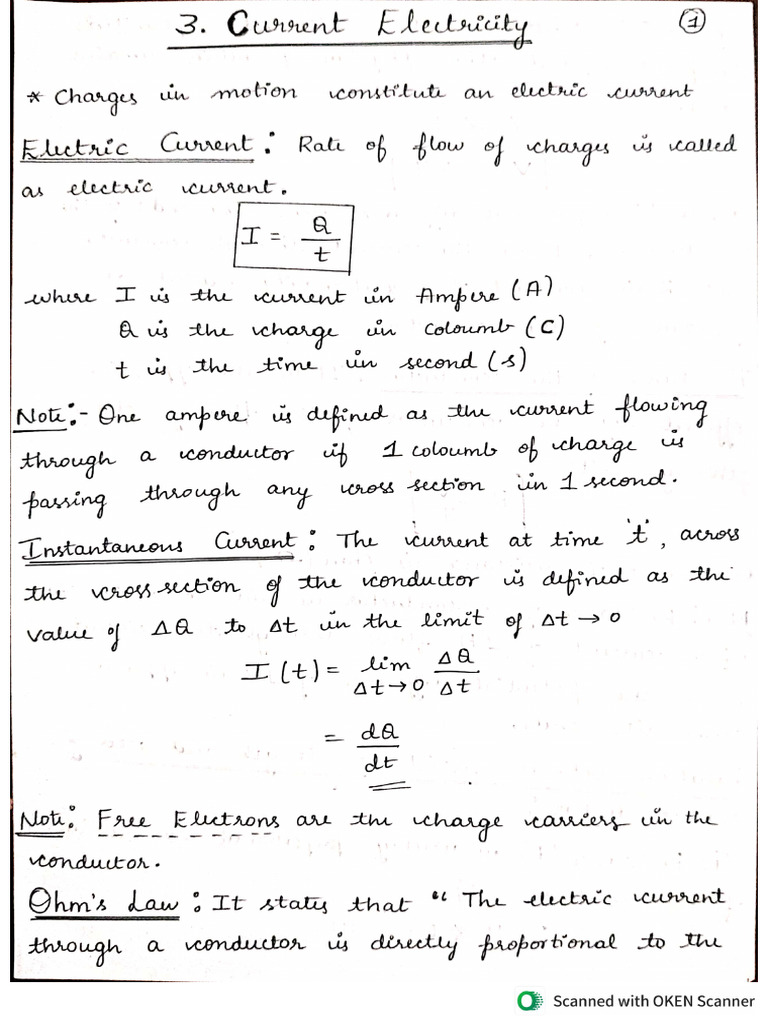 3. Current Electricity
1
* Charges in motion constitute an electric current
Electric Current : Rate of flow of charges is called
as electric current.
I = Q/t
where I is the current in Ampere (A)
Q is the charge in coloumb (C)
t is the time in second (s)
Note:- One ampere is defined as the current flowing
through a conductor if 1 coloumb of charge is
passing through any cross section in 1 second.
Instantaneous Current : The current at time 't', across
the cross section of the conductor is defined as the
value of ΔQ to Δt in the limit of Δt → 0
I (t) = lim Δt→0 ΔQ/Δt
= dQ/dt
Note: Free Electrons are the charge carriers in the
conductor.
Ohm's Law : It states that “ The electric current
through a conductor is directly proportional to the
Scanned with OKEN Scanner